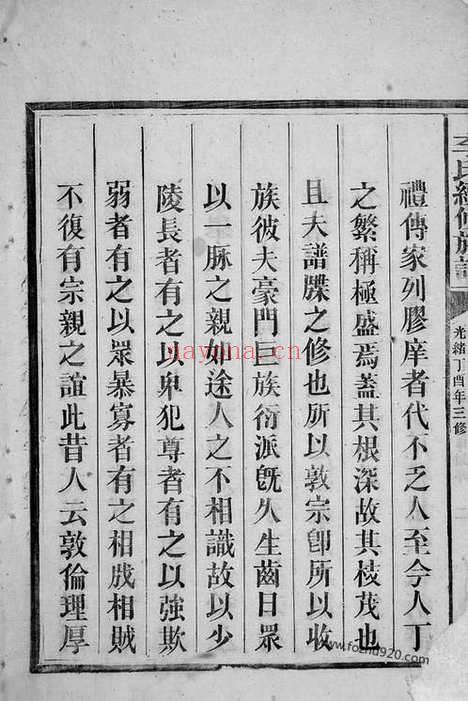 李氏續修族譜
光緒丁酉年三修
禮傳家列膠庠者代不乏人至今人丁
之繁稱極盛焉蓋其根深故其枝茂也
且夫譜牒之修也所以敦宗卽所以收
族彼夫豪門巨族衍派旣久生齒日眾
以一脈之親如途人之不相識故以少
陵長者有之以卑犯尊者有之以強欺
弱者有之以眾暴寡者有之相戕相賊
不復有宗親之誼此昔人云敦倫理厚
nayona.cn
www.fozhu920.com